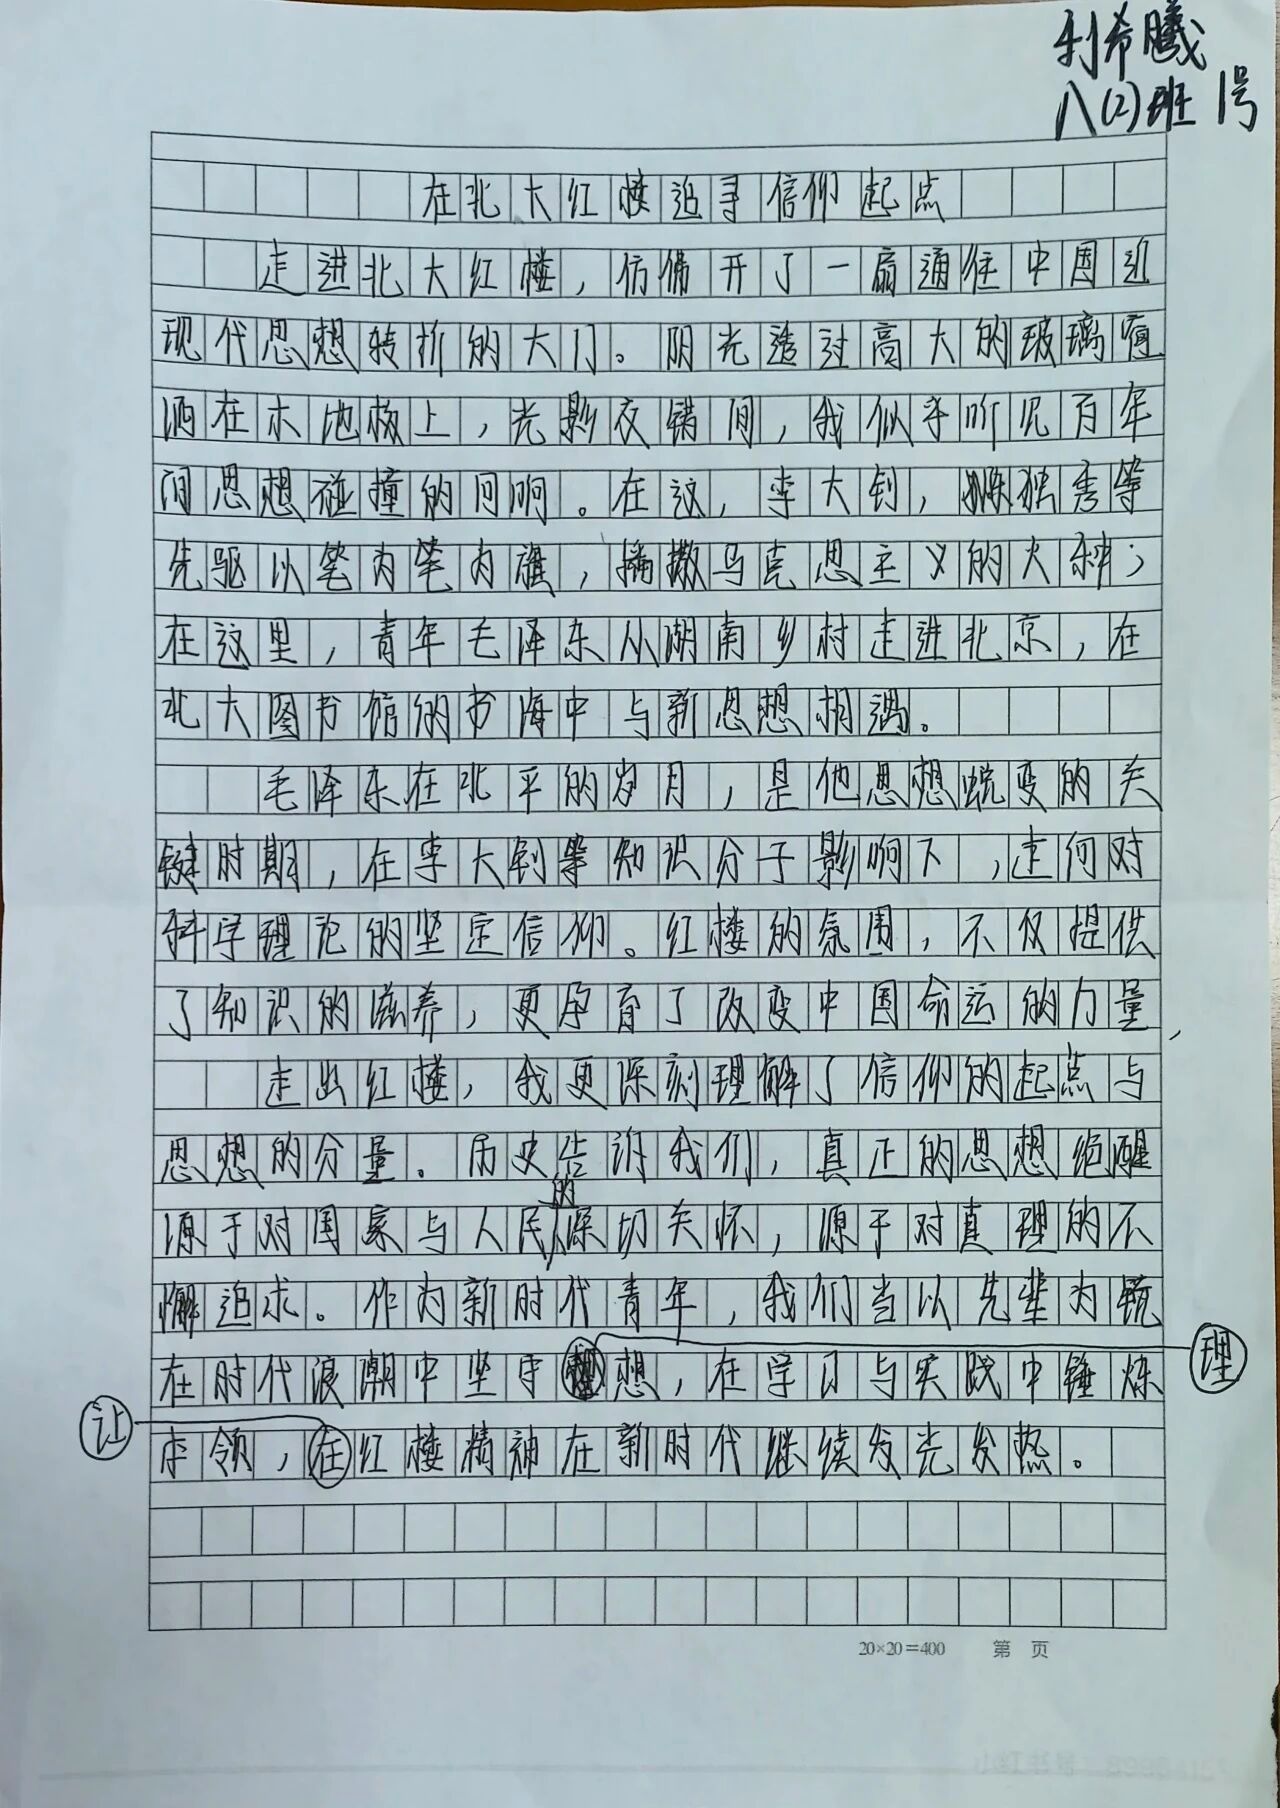 利希曦
八(2)班 1号
在北大红楼追寻信仰起点
走进北大红楼，仿佛开了一扇通往中国近
现代思想转折的大门。阴光透过高大的玻璃窗
洒在木地板上，光影交错间，我似乎听见百年
间思想碰撞的回响。在这，李大钊，陈独秀等
先驱以笔为笔为旗，播撒马克思主义的火种；
在这里，青年毛泽东从湖南乡村走进北京，在
北大图书馆的书海中与新思想相遇。
毛泽东在北平的岁月，是他思想蜕变的关
键时期，在李大钊等知识分子影响下，走向对
科学理论的坚定信仰。红楼的氛围，不仅提供
了知识的滋养，更孕育了改变中国命运的力量，
走出红楼，我更深刻理解了信仰的起点与
思想的分量。历史告诉我们，真正的思想绝醒
源于对国家与人民的深切关怀，源于对真理的不
懈追求。作为新时代青年，我们当以先辈为镜
在时代浪潮中坚守理想，在学习与实践中锤炼
本领，让红楼精神在新时代继续发光发热。
20×20=400 第 页